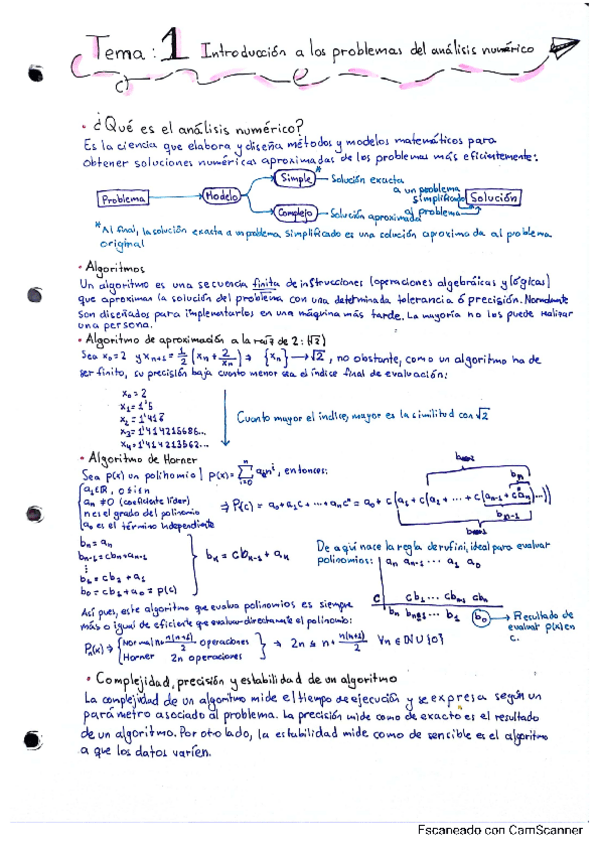 Tema: 1 Introducción a los problemas del análisis numérico
• ¿Qué es el análisis numérico?
Es la ciencia que elabora y diseña métodos y modelos matemáticos para
obtener soluciones numéricas aproximadas de los problemas más eficientemente:
Problema
Modelo
Simple*
Solución exacta
a un problema
simplificado
Complejo
Solución aproximada
al problema
Solución
*Al final, la solución exacta a un problema simplificado es una solución aproximada al problema
original
• Algoritmos
Un algoritmo es una secuencia finita de instrucciones (operaciones algebráicas y lógicas)
que aproximan la solución del problema con una determinada tolerancia ó precisión. Normalmente
son diseñados para implementarlos en una máquina más tarde. La mayoría no los puede realizar
una persona.
• Algoritmo de aproximación a la raíz de 2: (√2)
Sea x₀=2 y xₙ₊₁ = 1/2 (xₙ + 2/xₙ) ⇒ {xₙ} → √2, no obstante, como un algoritmo ha de
ser finito, su precisión baja cuanto menor sea el índice final de evaluación:
x₀ = 2
x₁ = 1'5
x₂ = 1'416
x₃ = 1'414215686...
x₄ = 1'414213562...
Cuanto mayor el indice, mayor es la similitud con √2
• Algoritmo de Horner
Sea p(x) un polinomio | p(x) = Σ aᵢxⁱ, entonces:
aᵢ∈ℝ, 0≤i≤n
aₙ ≠0 (coeficiente líder)
n es el grado del polinomio
a₀ es el término independiente
⇒ P(c) = a₀+a₁c+...+aₙcⁿ = a₀ + c(a₁ + c(a₂ + ... + c(aₙ₋₁ + caₙ)...))
bₙ
bₙ₋₁
bₙ = aₙ
bₙ₋₁ = cbₙ+aₙ₋₁
⋮
b₁ = cb₂ + a₁
b₀ = cb₁ + a₀ = p(c)
De aquí nace la regla de rufini, ideal para evaluar
polinomios:
aₙ aₙ₋₁ ... a₁ a₀
c
cb₁
cbₙ
bₙ bₙ₋₁ ... b₁ b₀
→ Resultado de
evaluar p(x) en
c.
Así pues, este algoritmo que evalua polinomios es siempre
más o igual de eficiente que evaluar directamente el polinomio:
Pₙ(x) ⇒ Normal
operaciones
Horner 2n operaciones
∀n ∈ ℕ∪{0}
• Complejidad, precisión y estabilidad de un algoritmo
La complejidad de un algoritmo mide el tiempo de ejecución y se expresa según un
parámetro asociado al problema. La precisión mide como de exacto es el resultado
de un algoritmo. Por oto lado, la estabilidad mide como de sensible es el algoritmo
a que los datos varíen.
Escaneado con CamScanner